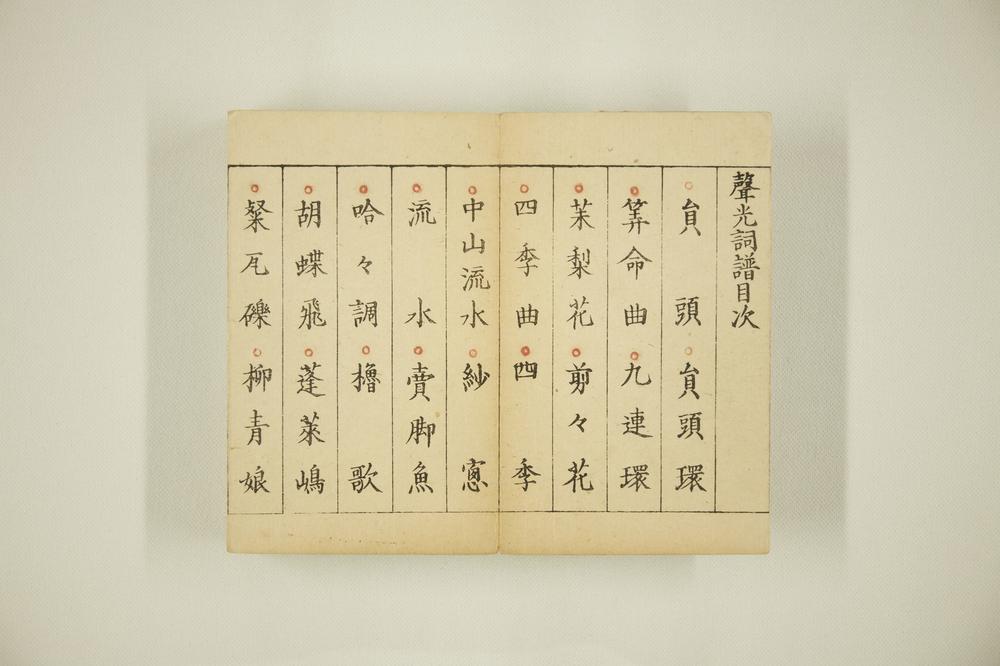 聲光詞譜目次
○㒵頭 ○㒵頭環
○筭命曲 ○九連環
○茉梨花 ○剪々花
○四季曲 ○四季
○中山流水 ○紗窓
○流水 ○賣脚魚
○哈々調 ○櫓歌
○胡蝶飛 ○蓬萊嶋
○粲瓦礫 ○柳青娘